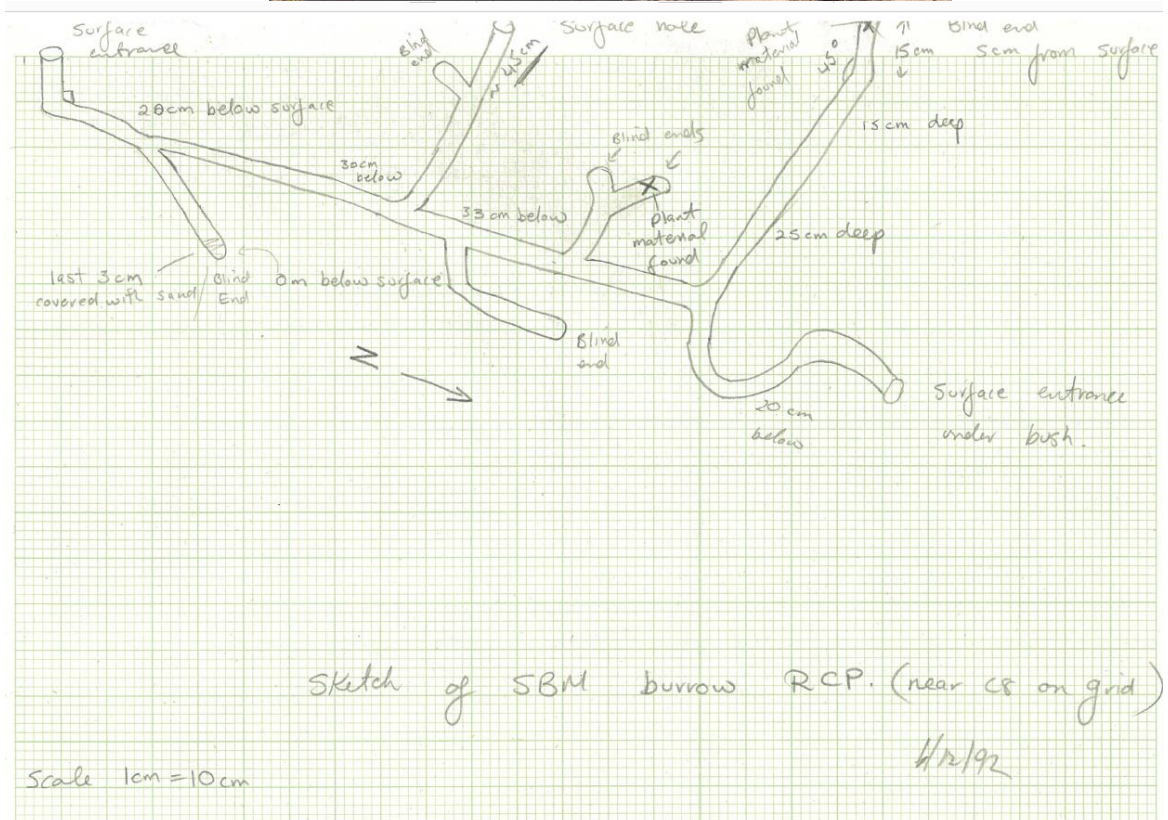 Surface
entrance
Blind
end
45cm
Surface hole
Plant
material
found
45°
15cm
Blind end
5cm from surface
20cm below surface
15cm deep
Blind ends
30cm
below
33cm below
Plant
material
found
25cm deep
last 3cm
covered with sand
Blind
End
0m below surface
Blind
end
N
20 cm
below
Surface entrance
under bush.
Sketch of SBM burrow RCP. (near C8 on grid)
/12/92
Scale 1cm = 10cm